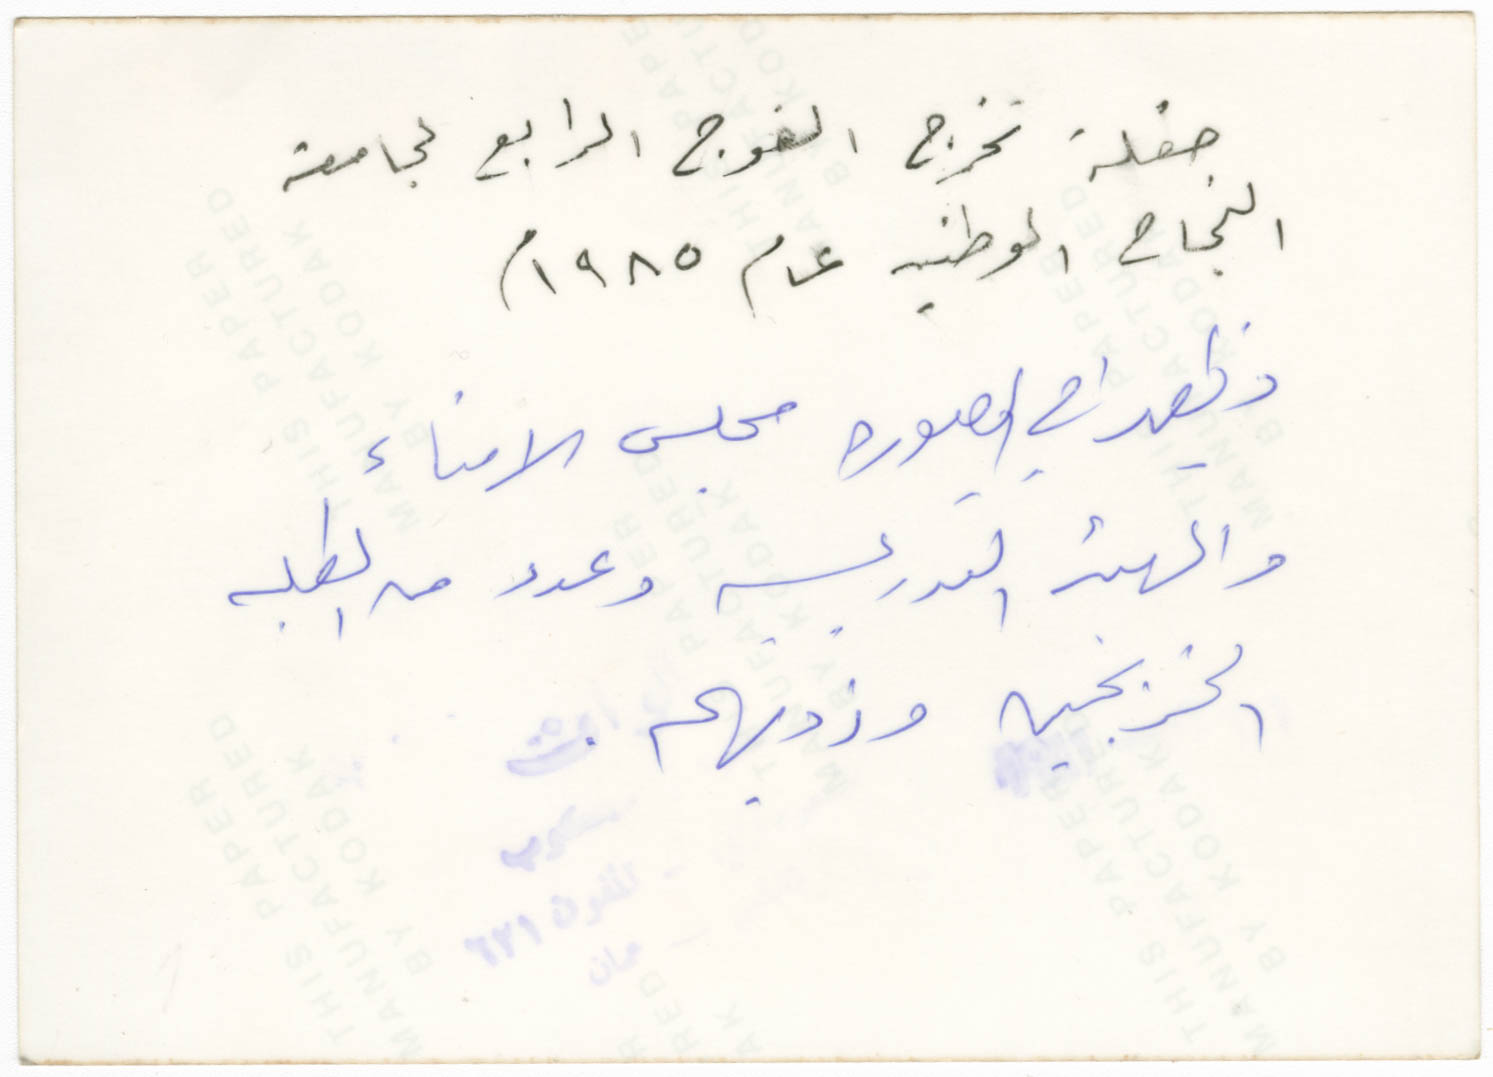 حفلة تخرج الفوج الرابع لجامعة
النجاح الوطنيه عام ١٩٨٥م
ويظهر في الصوره مجلس الامناء
والهيئة التدريسيه وعدد من الطلبه
الخريجين وذويهم.
THIS PAPER
MANUFACTURED
BY KODAK